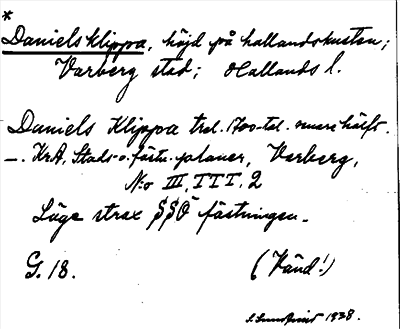 *
Daniels klippa, höjd på hallandskusten;
Varberg stad; Hallands l.
Daniels Klippa trol. 1700-tal. senare hälft.
–. Kr.A. Stads- o. fästn. planer, Varberg,
N:o III, TTT. 2
Läge strax SSO fästningen.
G. 18. (Vänd!)
1938.